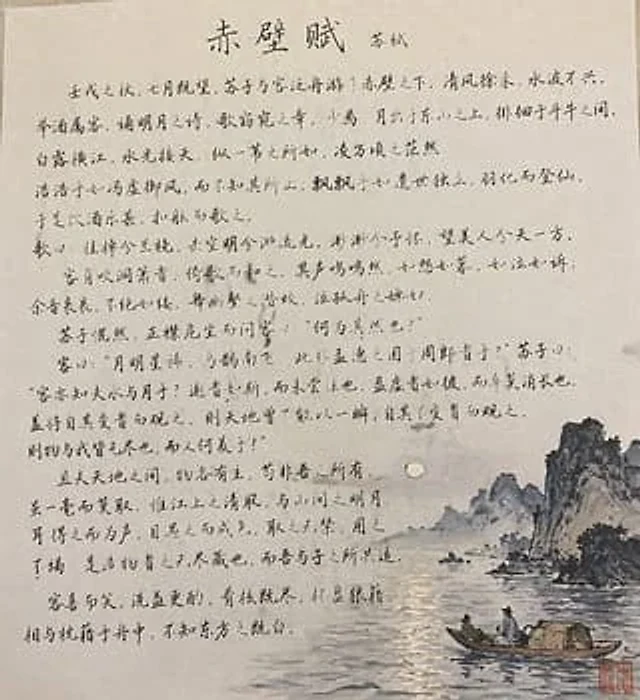 赤壁赋 苏轼
壬戌之秋，七月既望，苏子与客泛舟游于赤壁之下，清风徐来，水波不兴。
举酒属客，诵明月之诗，歌窈窕之章。少焉，月出于东山之上，徘徊于斗牛之间，
白露横江，水光接天，纵一苇之所如，凌万顷之茫然
浩浩乎如冯虚御风，而不知其所止；飘飘乎如遗世独立，羽化而登仙。
于是饮酒乐甚，扣舷而歌之。
歌曰：桂棹兮兰桨，击空明兮溯流光，渺渺兮予怀，望美人兮天一方。
客有吹洞箫者，倚歌而和之，其声呜呜然，如怨如慕，如泣如诉；
余音袅袅，不绝如缕，舞幽壑之潜蛟，泣孤舟之嫠妇。
苏子愀然，正襟危坐而问客：“何为其然也？”
客曰：“月明星稀，乌鹊南飞 此非孟德之困于周郎者乎？”苏子曰：
“客亦知夫水与月乎？逝者如斯，而未尝往也，盈虚者如彼，而卒莫消长也，
盖将自其变者而观之，则天地曾 能以一瞬，自其不变者而观之，
则物与我皆无尽也，而又何羡乎！”
且夫天地之间，物各有主，苟非吾之所有，
一毫而莫取，惟江上之清风，与山间之明月
耳得之而为声，目遇之而成色，取之无禁，用之
不竭 是造物者之无尽藏也，而吾与子之所共适
客喜而笑，洗盏更酌，肴核既尽，杯盘狼藉
相与枕藉于舟中，不知东方之既白。